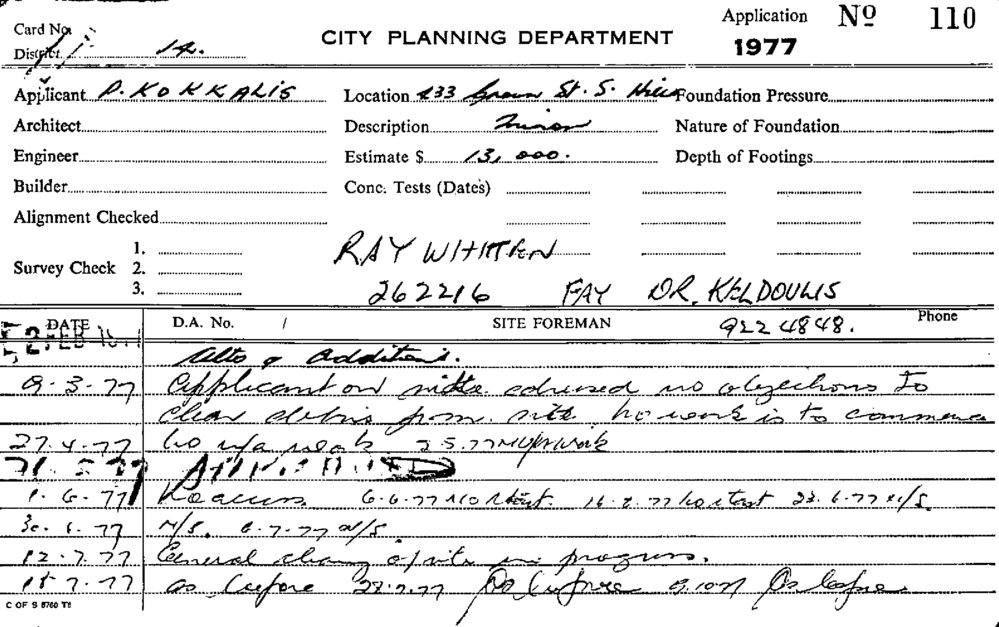 Card No. Application Nº 110
District 14. CITY PLANNING DEPARTMENT 1977
Applicant P. KOKKALIS Location 433 St. S. Hills Foundation Pressure
Architect Description Foundation Nature of Foundation
Engineer Estimate $ 13,000. Depth of Footings
Builder Conc. Tests (Dates)
Alignment Checked
1. RAY WHITTEN
Survey Check 2.
3. 262216 FAY DR. KELDOULIS
DATE D.A. No. / SITE FOREMAN 922 4848. Phone
FEB
Alts & Additions.
9-3-77 Applicant on site advised no objections to
clear debris from site no work is to commence
27.4.77 2.5.77 work
APPROVED
1.6.77 No access 6.6.77 no start. 16.6.77 no start 23.6.77 N/S.
30.6.77 N/S. 6.7.77 N/S.
12.7.77 General cleaning of site in progress.
15.7.77 as before 28.7.77 As before 9.10.77 As before
C OF S 8760 T8